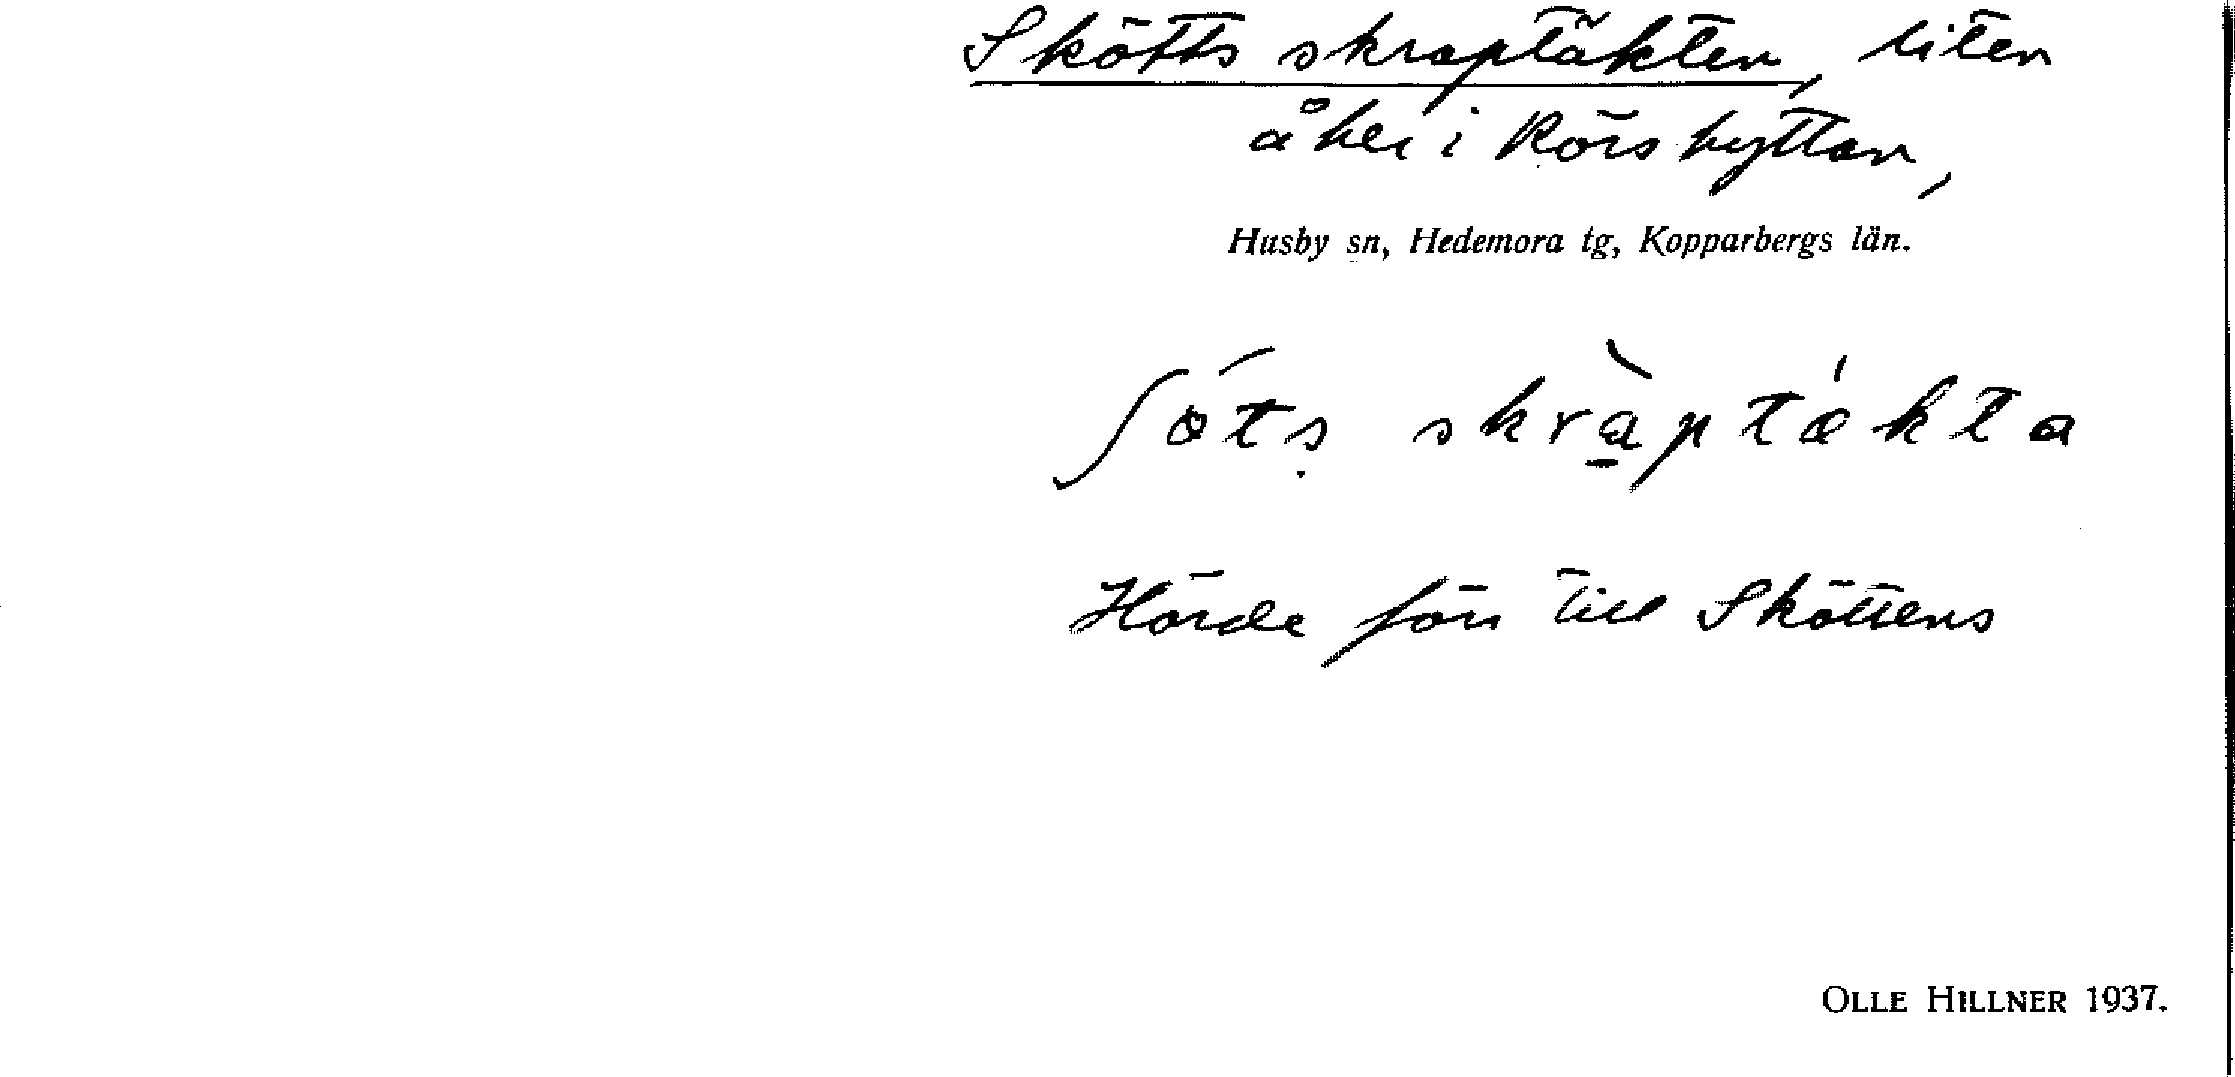 Skötts skraptäkten, liten
åker i Rörshyttan,
Husby sn, Hedemora tg, Kopparbergs län.
ʃǿtṣ skràptǽkta
Hörde förr till Sköttens
OLLE HILLNER 1937.